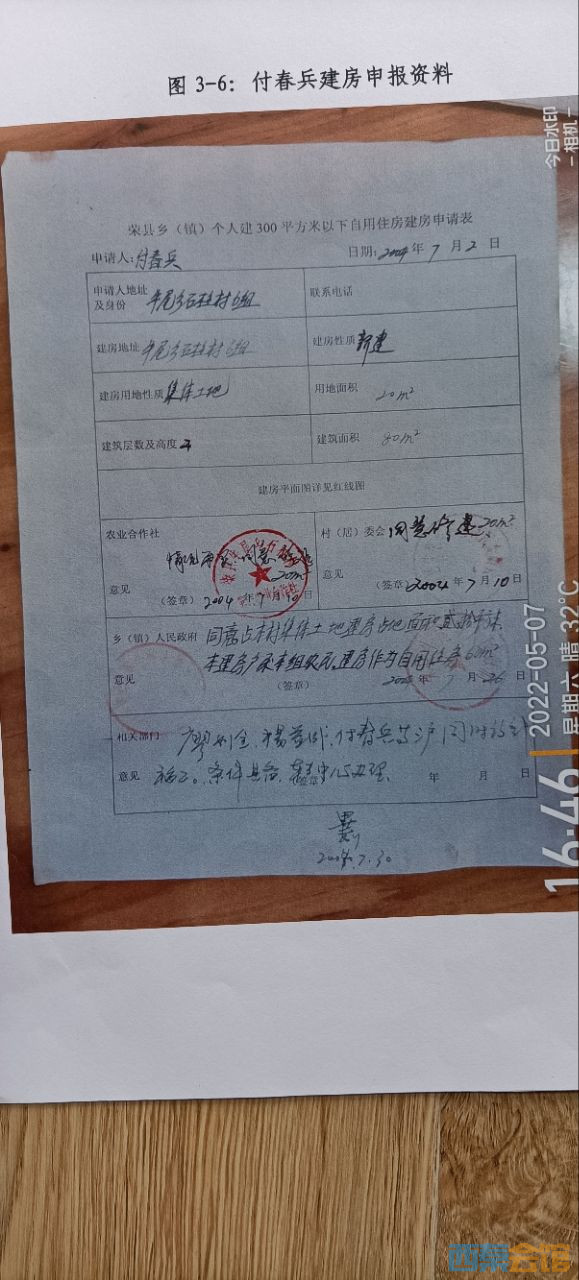 图 3-6：付春兵建房申报资料
荣县乡（镇）个人建300平方米以下自用住房建房申请表
申请人:付春兵 日期:2004年7月2日
申请人地址及身份 石柱村6组 联系电话
建房地址 石柱村6组 建房性质 新建
建房用地性质 集体土地 用地面积 20m²
建筑层数及高度 建筑面积 80m²
建房平面图详见红线图
农业合作社 村（居）委会 同意修建20m²
情况属实 同意 20m²
意见 意见
（签章）2004年7月10日 （签章）2004年7月10日
乡（镇）人民政府 同意占本村集体土地建房占地面积贰拾平米，
本组农民，建房作为自用住房
意见 （签章） 7月26日
相关部门 付春兵
意见 条件具备 办理 年 月 日
7.30
今日水印
-相机-
16:46
2022-05-07
星期六 晴 32℃
西秦会馆